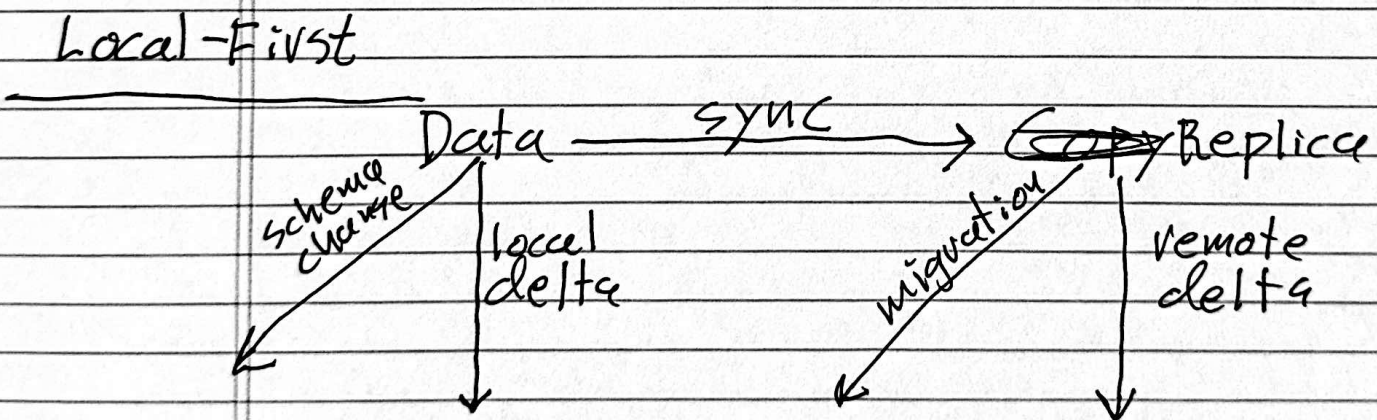 Local-First
Data sync Copy Replica
schema
change
local
delta
migration
remote
delta